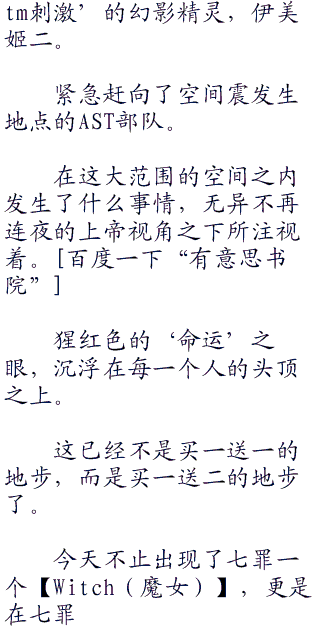 tm刺激’的幻影精灵，伊美
姬二。
紧急赶向了空间震发生
地点的AST部队。
在这大范围的空间之内
发生了什么事情，无异不再
连夜的上帝视角之下所注视
着。[百度一下“有意思书
院”]
猩红色的‘命运’之
眼，沉浮在每一个人的头顶
之上。
这已经不是买一送一的
地步，而是买一送二的地步
了。
今天不止出现了七罪一
个【Witch（魔女）】，更是
在七罪